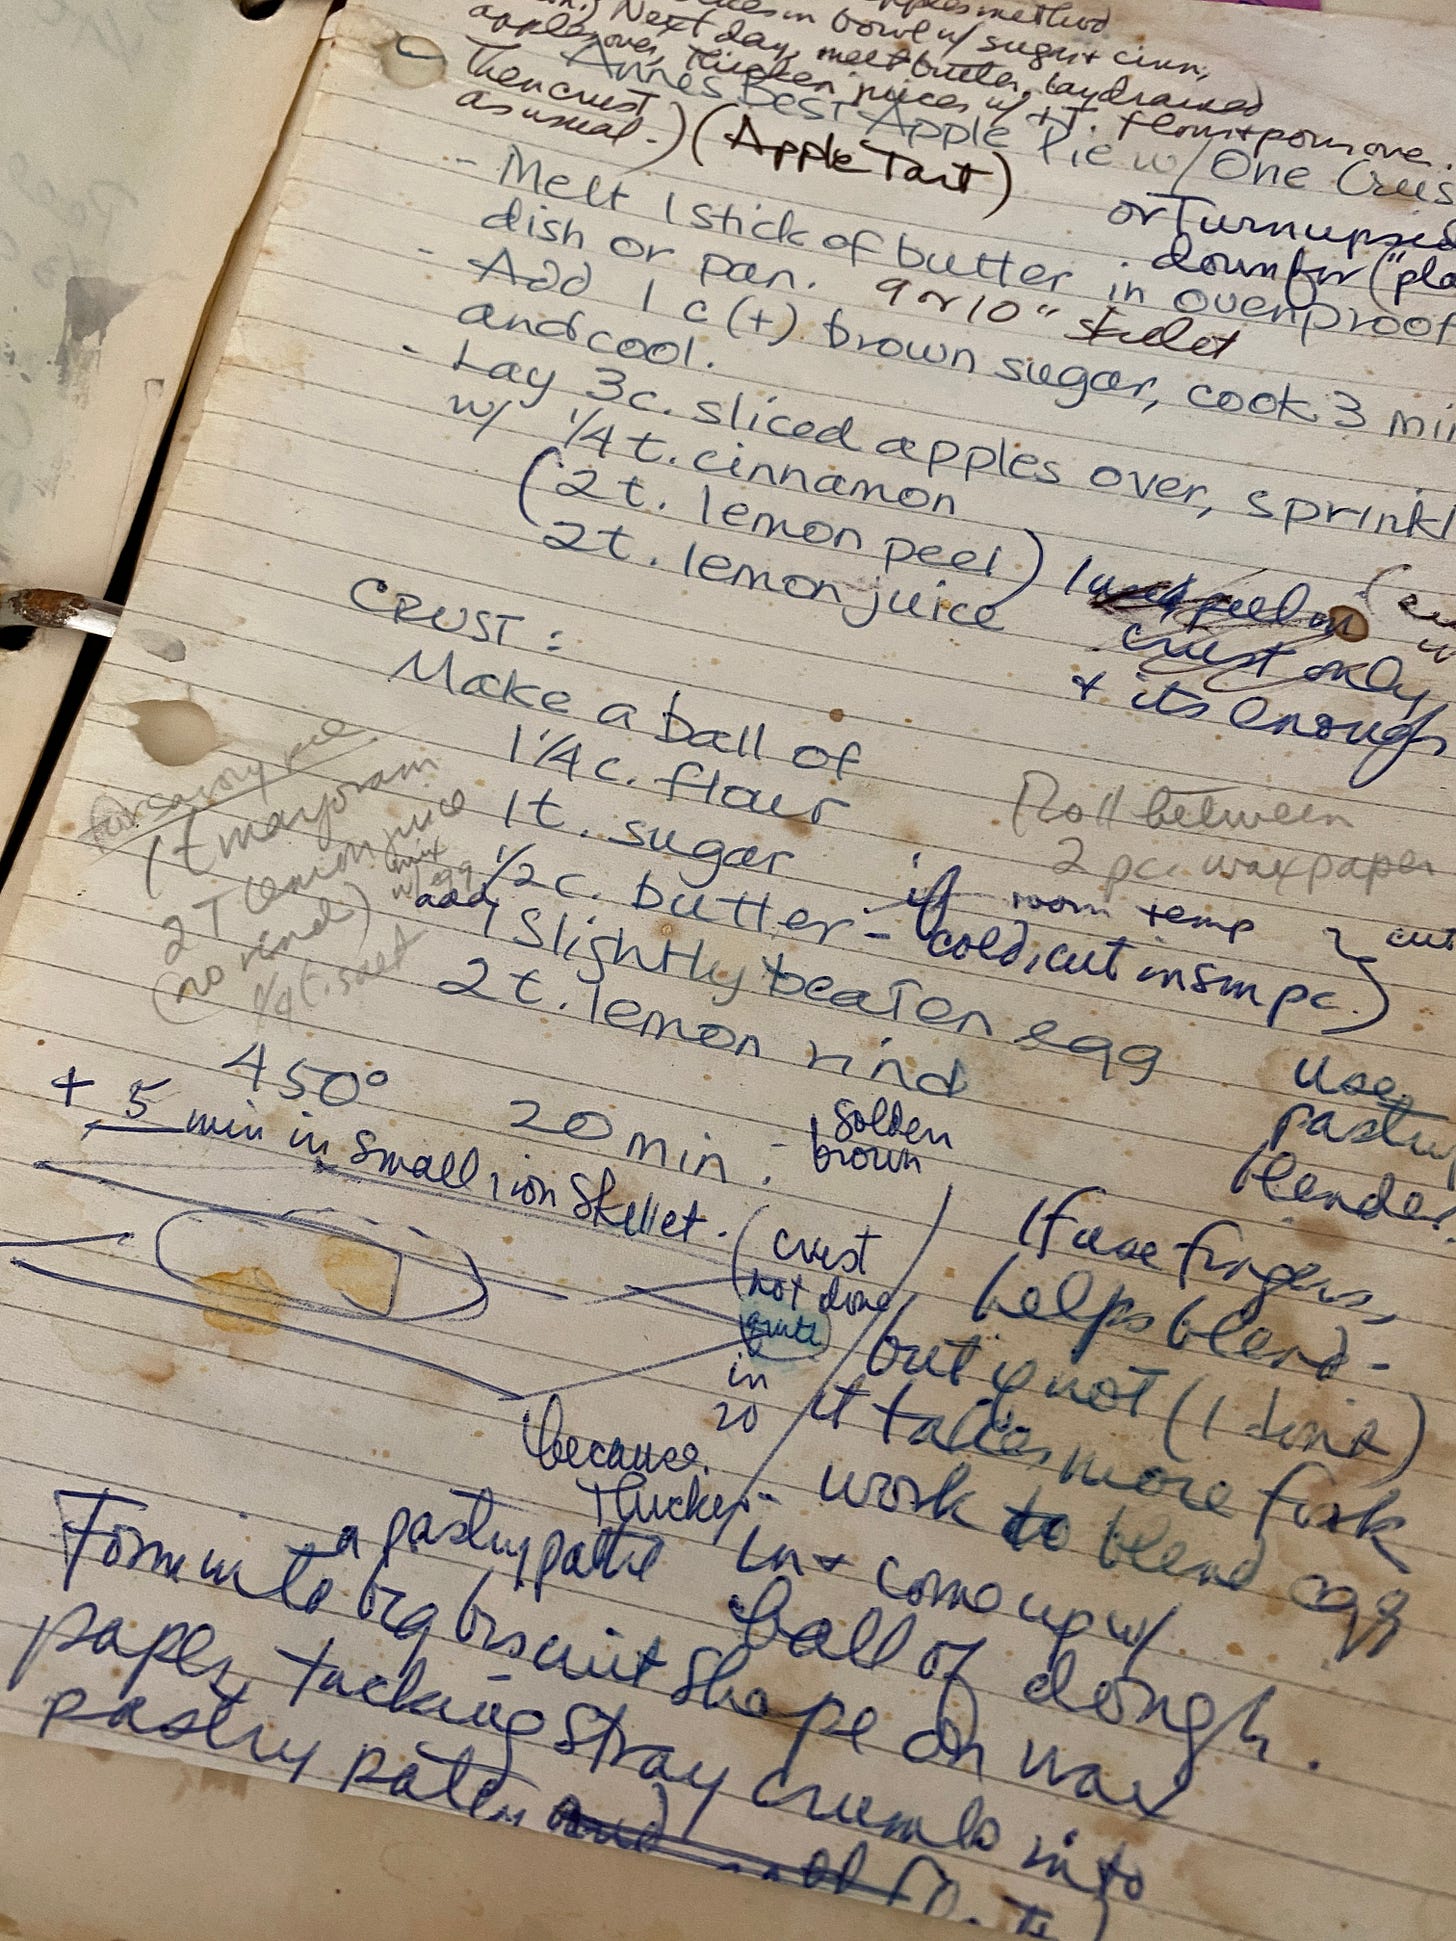 apples method
in bowl w/ sugar + cinn,
Next day, melt butter, lay drained
apples over, thicken juices w/ 1 T. flour + pour over.
Then crust
as usual.)
Anne's Best Apple Pie w/ One Crus
(Apple Tart)
or Turn upsid
down for ("pla
- Melt 1 stick of butter in ovenproof
dish or pan. 9 or 10" skillet
- Add 1 c (+) brown sugar, cook 3 min
and cool.
- Lay 3 c. sliced apples over, sprinkl
w/ 1/4 t. cinnamon
(2 t. lemon peel)
2 t. lemon juice
I used peel in
crust only
+ its enough
CRUST:
Make a ball of
1 1/4 c. flour
1 t. sugar
1/2 c. butter - if room temp
cold, cut in sm pc.)
cut
add 1 slightly beaten egg
2 t. lemon rind
Roll between
2 pc. wax paper
for savory pie
1 t marjoram
2 T lemon juice
(no rind)
mix
w/ egg
1/4 t. salt
use
pastry
blender
450° 20 min. :
golden
brown
+ 5 min in small iron skillet.
(crust
not done
quite
in
20
because
thicker -
If use fingers,
helps blend -
but if not (I dont)
it takes more fork
work to blend egg
in + come up w/
ball of dough.
a pastry patté
Form into big biscuit shape on wax
paper, tucking stray crumbs into
pastry patty and